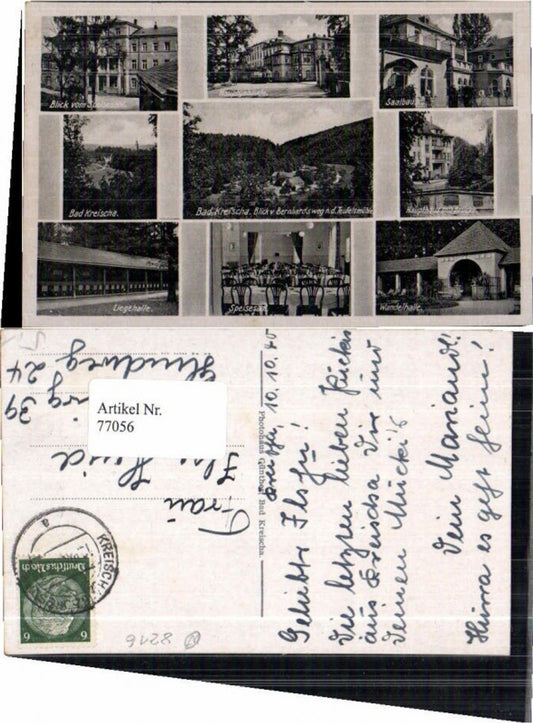 Blick vom Speisesaal
Saalbau
Bad Kreischa.
Bad Kreischa. Blick v. Bernhardsweg n. d. Teufelsmühle
Liegehalle.
Speisesaal
Wandelhalle.
Artikel Nr.
77056
Frau
24
39
Photohaus Günther, Bad Kreischa.
KREISCHA
Deutsches Reich
6 6
8216
10.10.40
Geliebte Ilsfu!
Die letzten lieben Kückis
aus Kreischa Dir und
Deinen Mücki's
Dein Mariandl!
Hurra es geht heim!